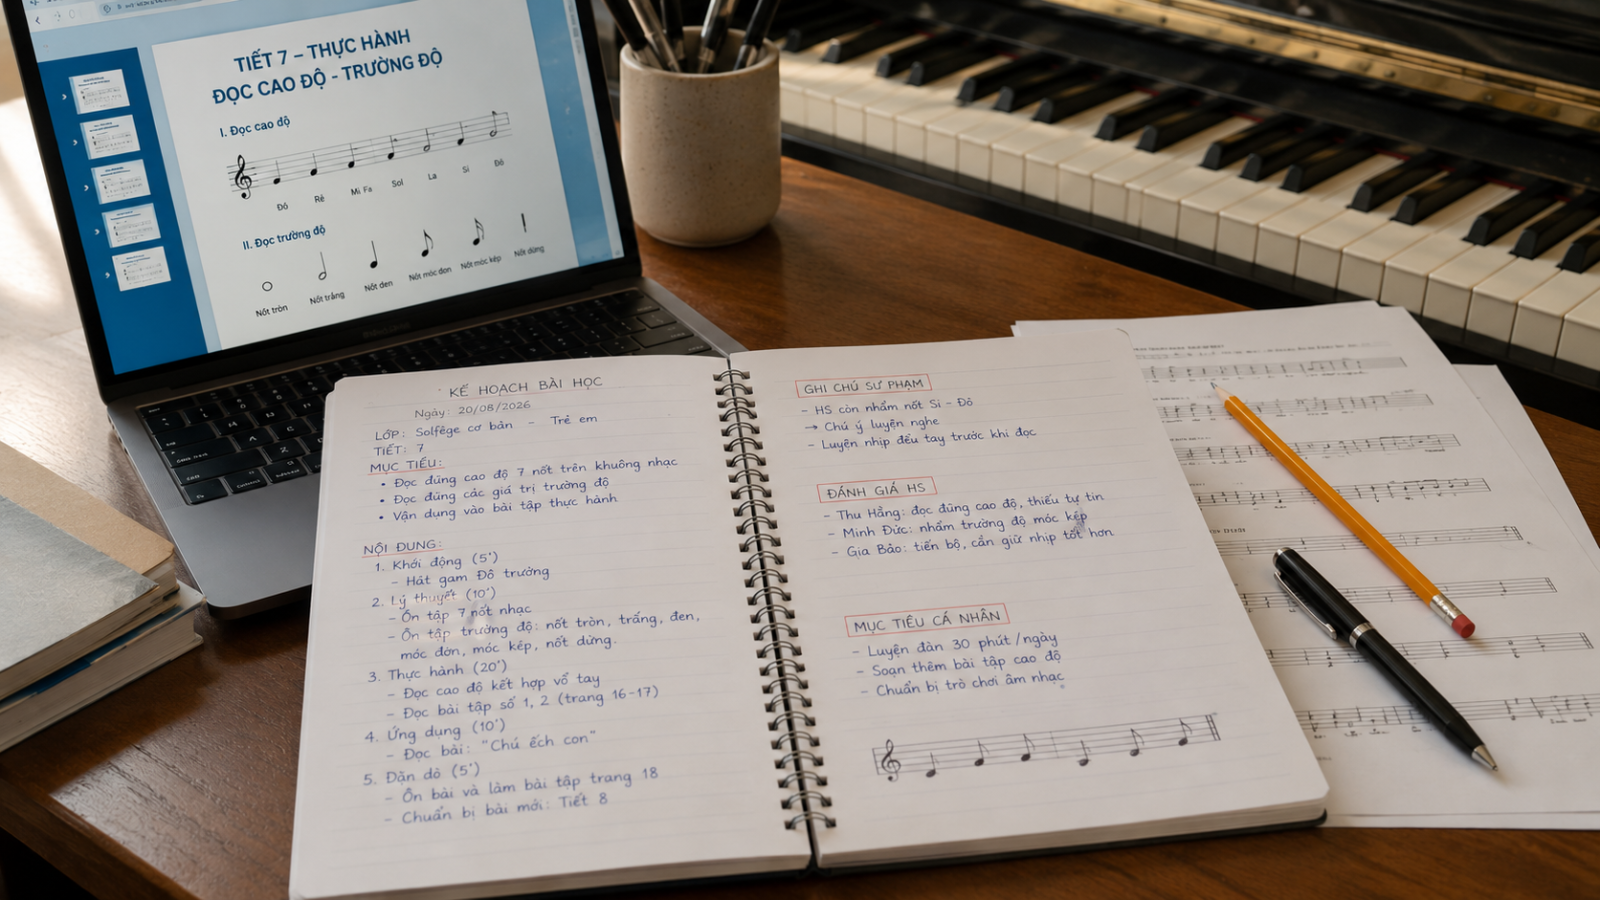 TIẾT 7 – THỰC HÀNH
ĐỌC CAO ĐỘ - TRƯỜNG ĐỘ
I. Đọc cao độ
Đô Rê Mi Fa Sol La Si Đô
II. Đọc trường độ
Nốt tròn Nốt trắng Nốt đen Nốt móc đơn Nốt móc kép Nốt dừng
KẾ HOẠCH BÀI HỌC
Ngày: 20/08/2026
LỚP: Solfège cơ bản – Trẻ em
TIẾT: 7
MỤC TIÊU:
• Đọc đúng cao độ 7 nốt trên khuông nhạc
• Đọc đúng các giá trị trường độ
• Vận dụng vào bài tập thực hành
NỘI DUNG:
1. Khởi động (5')
– Hát gam Đô trưởng
2. Lý thuyết (10')
– Ôn tập 7 nốt nhạc
– Ôn tập trường độ: nốt tròn, trắng, đen,
móc đơn, móc kép, nốt dừng.
3. Thực hành (20')
– Đọc cao độ kết hợp vỗ tay
– Đọc bài tập số 1, 2 (trang 16-17)
4. Ứng dụng (10')
– Đọc bài: "Chú ếch con"
5. Dặn dò (5')
– Ôn bài và làm bài tập trang 18
– Chuẩn bị bài mới: Tiết 8
GHI CHÚ SƯ PHẠM
– HS còn nhầm nốt Si – Đô
→ Chú ý luyện nghe
– Luyện nhịp đều tay trước khi đọc
ĐÁNH GIÁ HS
– Thu Hằng: đọc đúng cao độ, thiếu tự tin
– Minh Đức: nhầm trường độ móc kép
– Gia Bảo: tiến bộ, cần giữ nhịp tốt hơn
MỤC TIÊU CÁ NHÂN
– Luyện đàn 30 phút/ngày
– Soạn thêm bài tập cao độ
– Chuẩn bị trò chơi âm nhạc